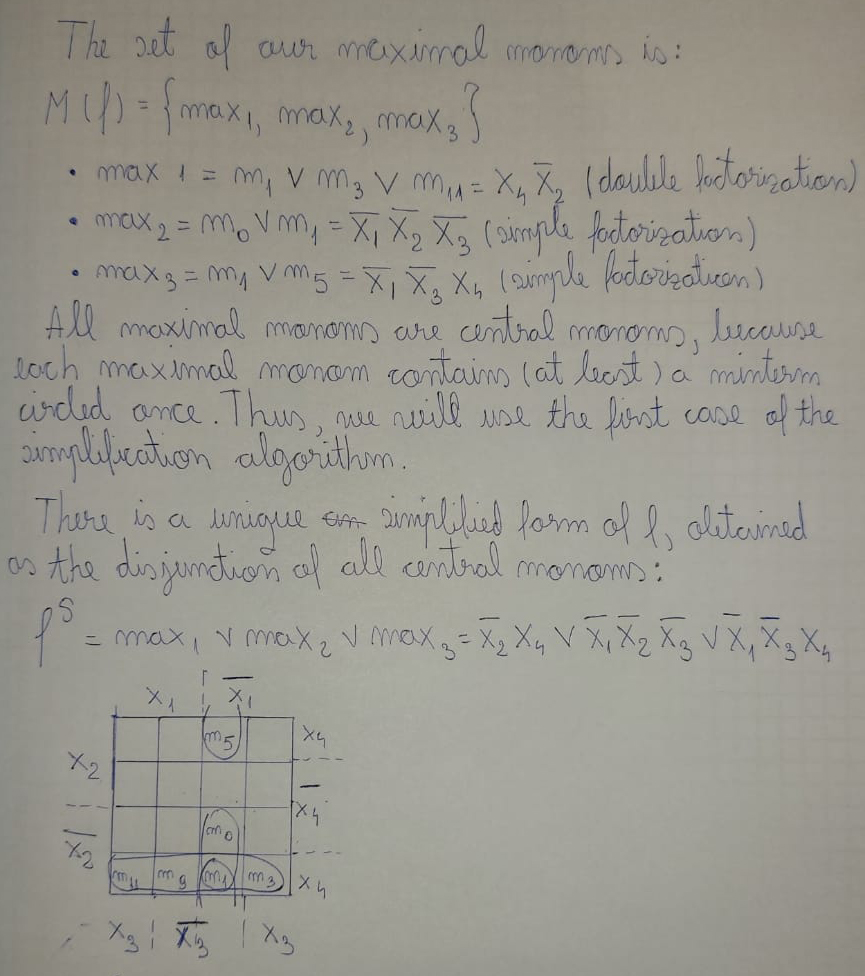 The set of our maximal monoms is:
M(f) = {max₁, max₂, max₃}
• max 1 = m₁ ∨ m₃ ∨ m₁₁ = X₄ X̅₂ (double factorization)
• max₂ = m₀ ∨ m₁ = X̅₁ X̅₂ X̅₃ (simple factorization)
• max₃ = m₁ ∨ m₅ = X̅₁ X̅₃ X₄ (simple factorization)
All maximal monoms are central monoms, because
each maximal monom contains (at least) a minterm
circled once. Thus, we will use the first case of the
simplification algorithm.
There is a unique simplified form of f, obtained
as the disjunction of all central monoms:
fˢ = max₁ ∨ max₂ ∨ max₃ = X̅₂ X₄ ∨ X̅₁ X̅₂ X̅₃ ∨ X̅₁ X̅₃ X₄
X₁ X̅₁
m₅ X₄
X₂
X̅₄
m₀
X̅₂
m₁₁ m₉ m₁ m₃ X₄
X₃ X̅₃ X₃